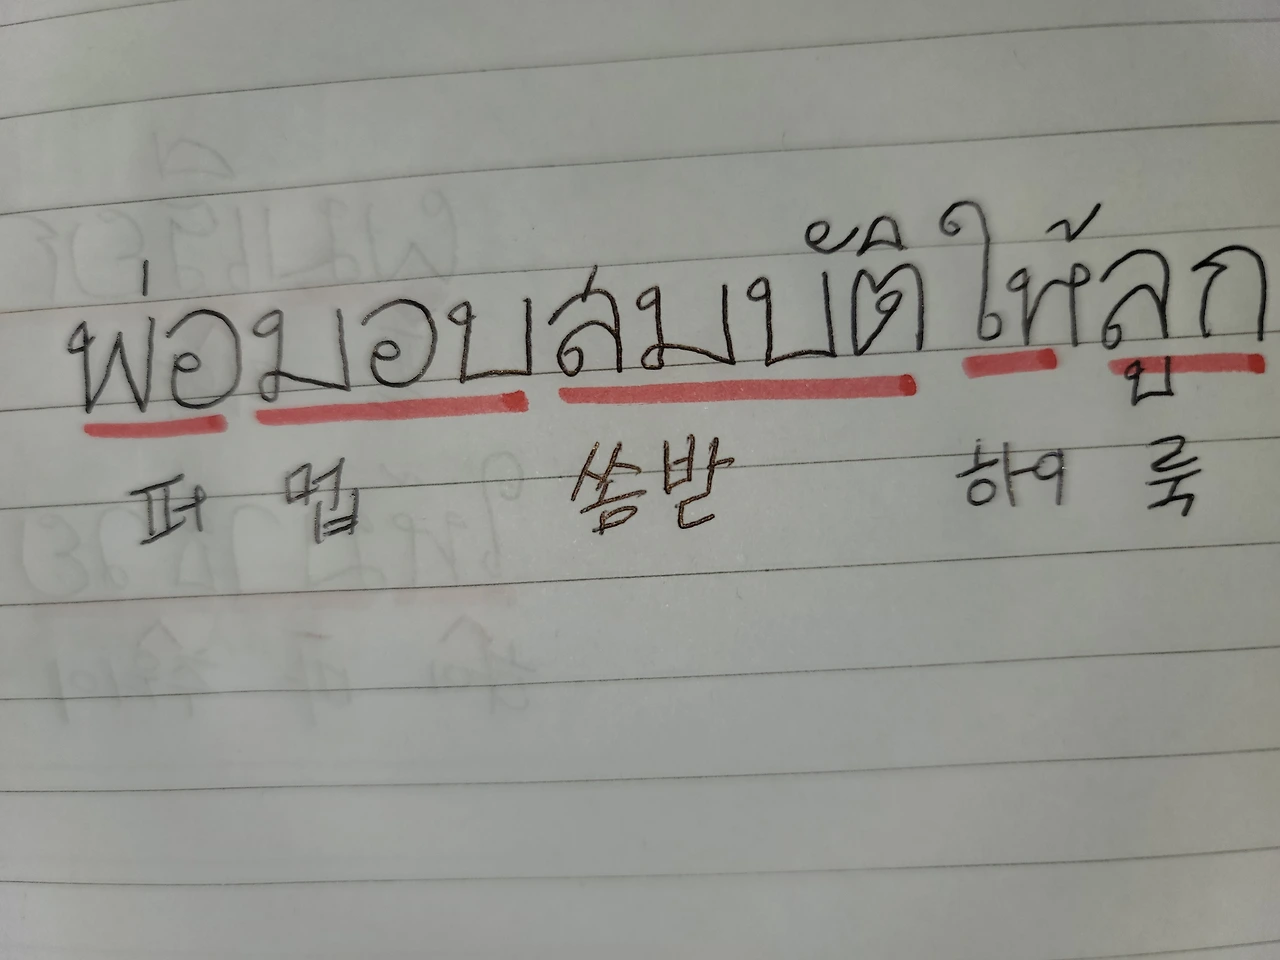 พ่อมอบสมบัติให้ลูก
퍼 멉 쏨밧 하이 룩